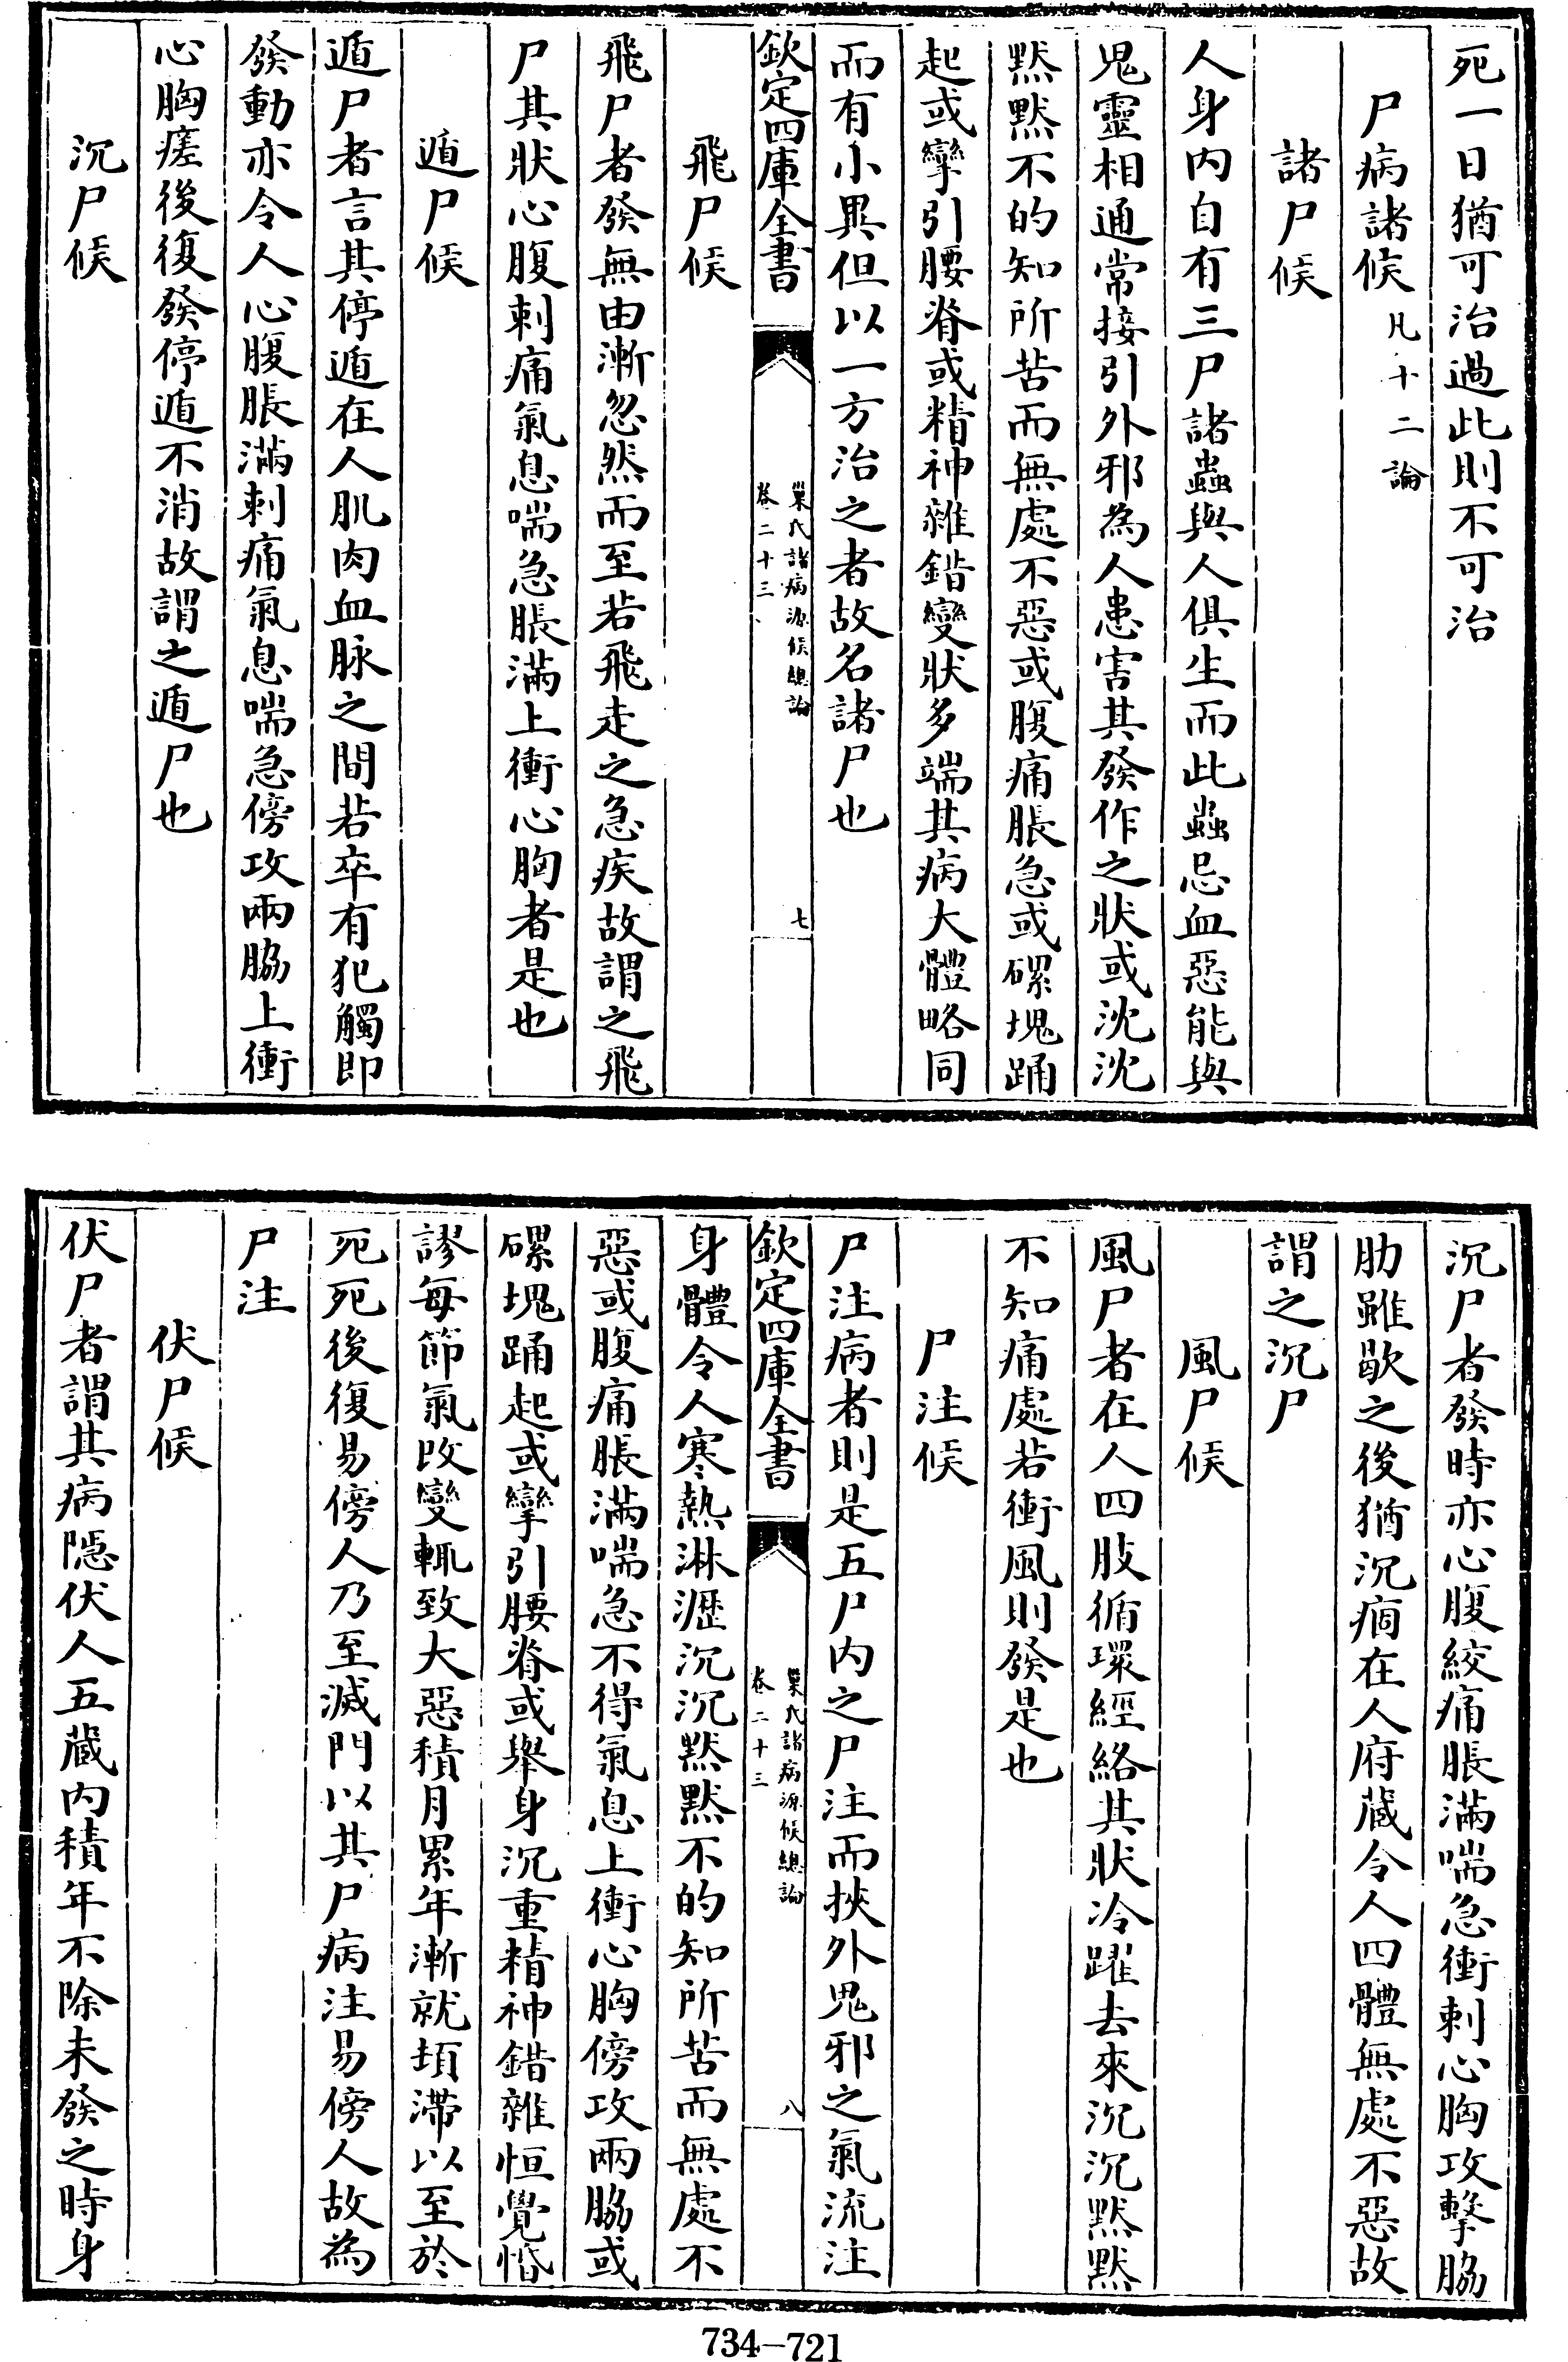 死一日猶可治過此則不可治
尸病諸候凡十二論
諸尸候
人身内自有三尸諸蟲與人俱生而此蟲忌血惡能與
鬼靈相通常接引外邪為人患害其發作之狀或沈沈
默默不的知所苦而無處不惡或腹痛脹急或磥塊踊
起或攣引腰脊或精神雜錯變狀多端其病大體略同
而有小異但以一方治之者故名諸尸也
欽定四庫全書
巢氏諸病源候總論
卷二十三
七
飛尸候
飛尸者發無由漸忽然而至若飛走之急疾故謂之飛
尸其狀心腹刺痛氣息喘急脹滿上衝心胸者是也
遁尸候
遁尸者言其停遁在人肌肉血脉之間若卒有犯觸即
發動亦令人心腹脹滿刺痛氣息喘急傍攻兩脇上衝
心胸瘥後復發停遁不消故謂之遁尸也
沉尸候
沉尸者發時亦心腹絞痛脹滿喘急衝刺心胸攻擊脇
肋雖歇之後猶沉痼在人府藏令人四體無處不惡故
謂之沉尸
風尸候
風尸者在人四肢循環經絡其狀冷躍去來沉沉默默
不知痛處若衝風則發是也
尸注候
尸注病者則是五尸内之尸注而挾外鬼邪之氣流注
欽定四庫全書
巢氏諸病源候總論
卷二十三
八
身體令人寒熱淋瀝沉沉默默不的知所苦而無處不
惡或腹痛脹滿喘急不得氣息上衝心胸傍攻兩脇或
磥塊踊起或攣引腰脊或舉身沉重精神錯雜恒覺惛
謬每節氣改變輒致大惡積月累年漸就頓滯以至於
死死後復易傍人乃至滅門以其尸病注易傍人故為
尸注
伏尸候
伏尸者謂其病隱伏人五藏内積年不除未發之時身
734-721